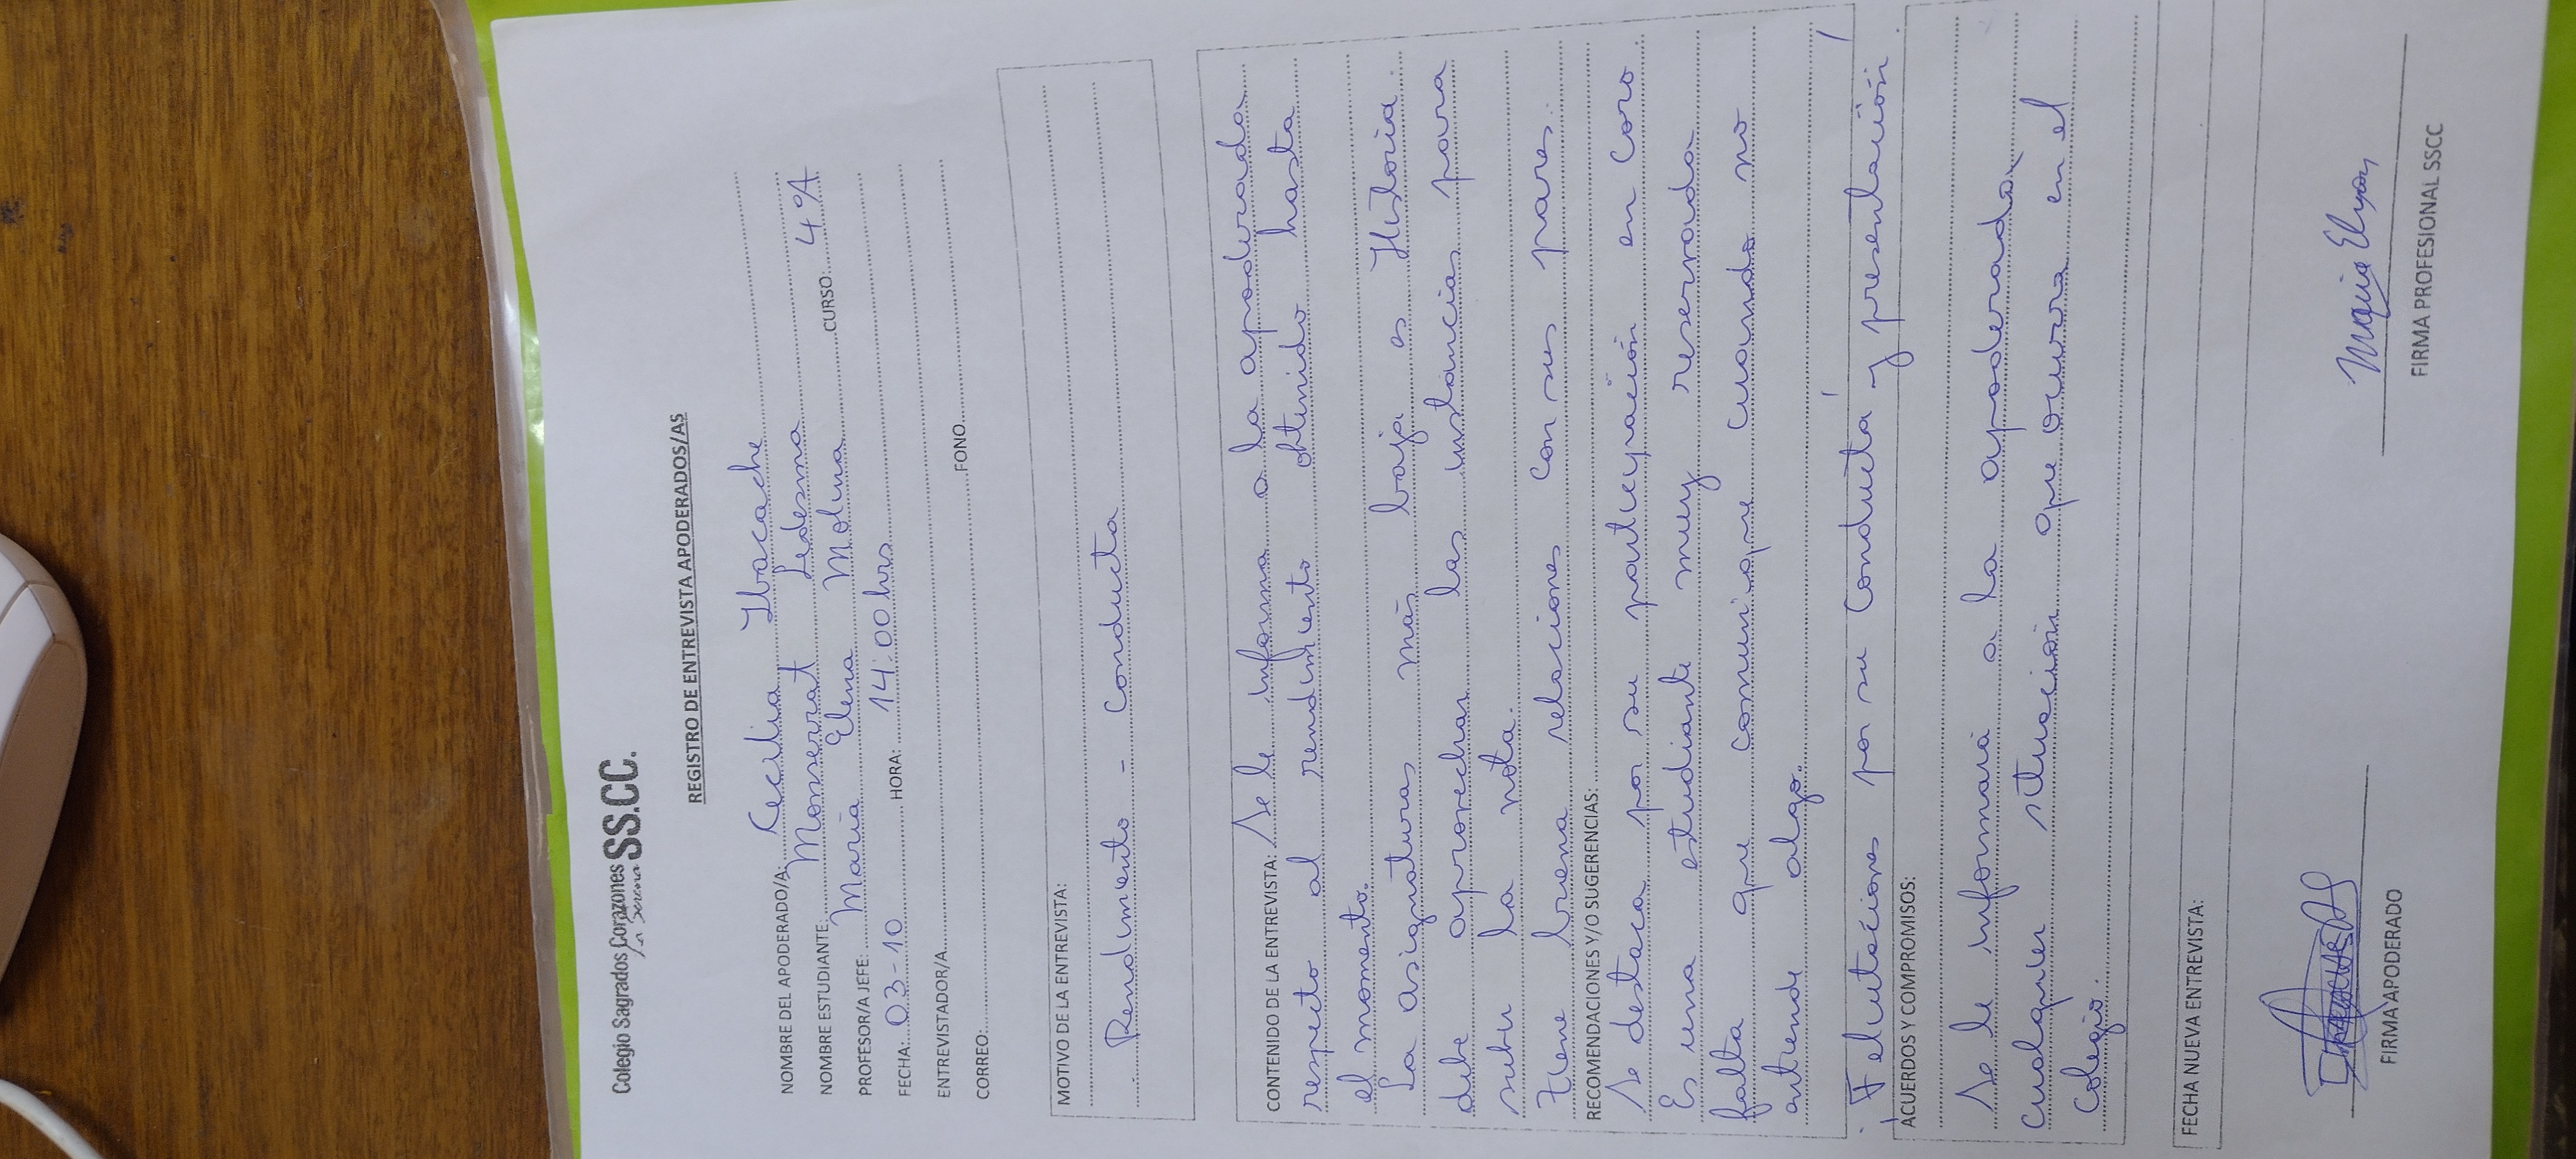 Colegio Sagrados Corazones SS.CC.
La Serena
REGISTRO DE ENTREVISTA APODERADOS/AS
NOMBRE DEL APODERADO/A: Cecilia Ibacache
NOMBRE ESTUDIANTE: Monserrat Ledesma CURSO: 4ºA
PROFESOR/A JEFE: Maria Elena Molina
FECHA: 03-10 HORA: 14:00 hrs
ENTREVISTADOR/A
CORREO: FONO
MOTIVO DE LA ENTREVISTA:
Rendimiento - Conducta
CONTENIDO DE LA ENTREVISTA: Se le informa a la apoderada
respecto al rendimiento obtenido hasta
el momento.
La asignaturas más baja es Historia.
debe aprovechar las instancias para
subir la nota.
Tiene buena relaciones con sus pares.
RECOMENDACIONES Y/O SUGERENCIAS:
Se destaca por su participación en Coro.
Es una estudiante muy reservada
falta que comunique cuando no
entiende algo.
¡Felicitaciones por su Conducta y presentación!
ACUERDOS Y COMPROMISOS:
Se le informará a la apoderada,
cualquier situación que ocurra en el
Colegio.
FECHA NUEVA ENTREVISTA:
FIRMA APODERADO
FIRMA PROFESIONAL SSCC